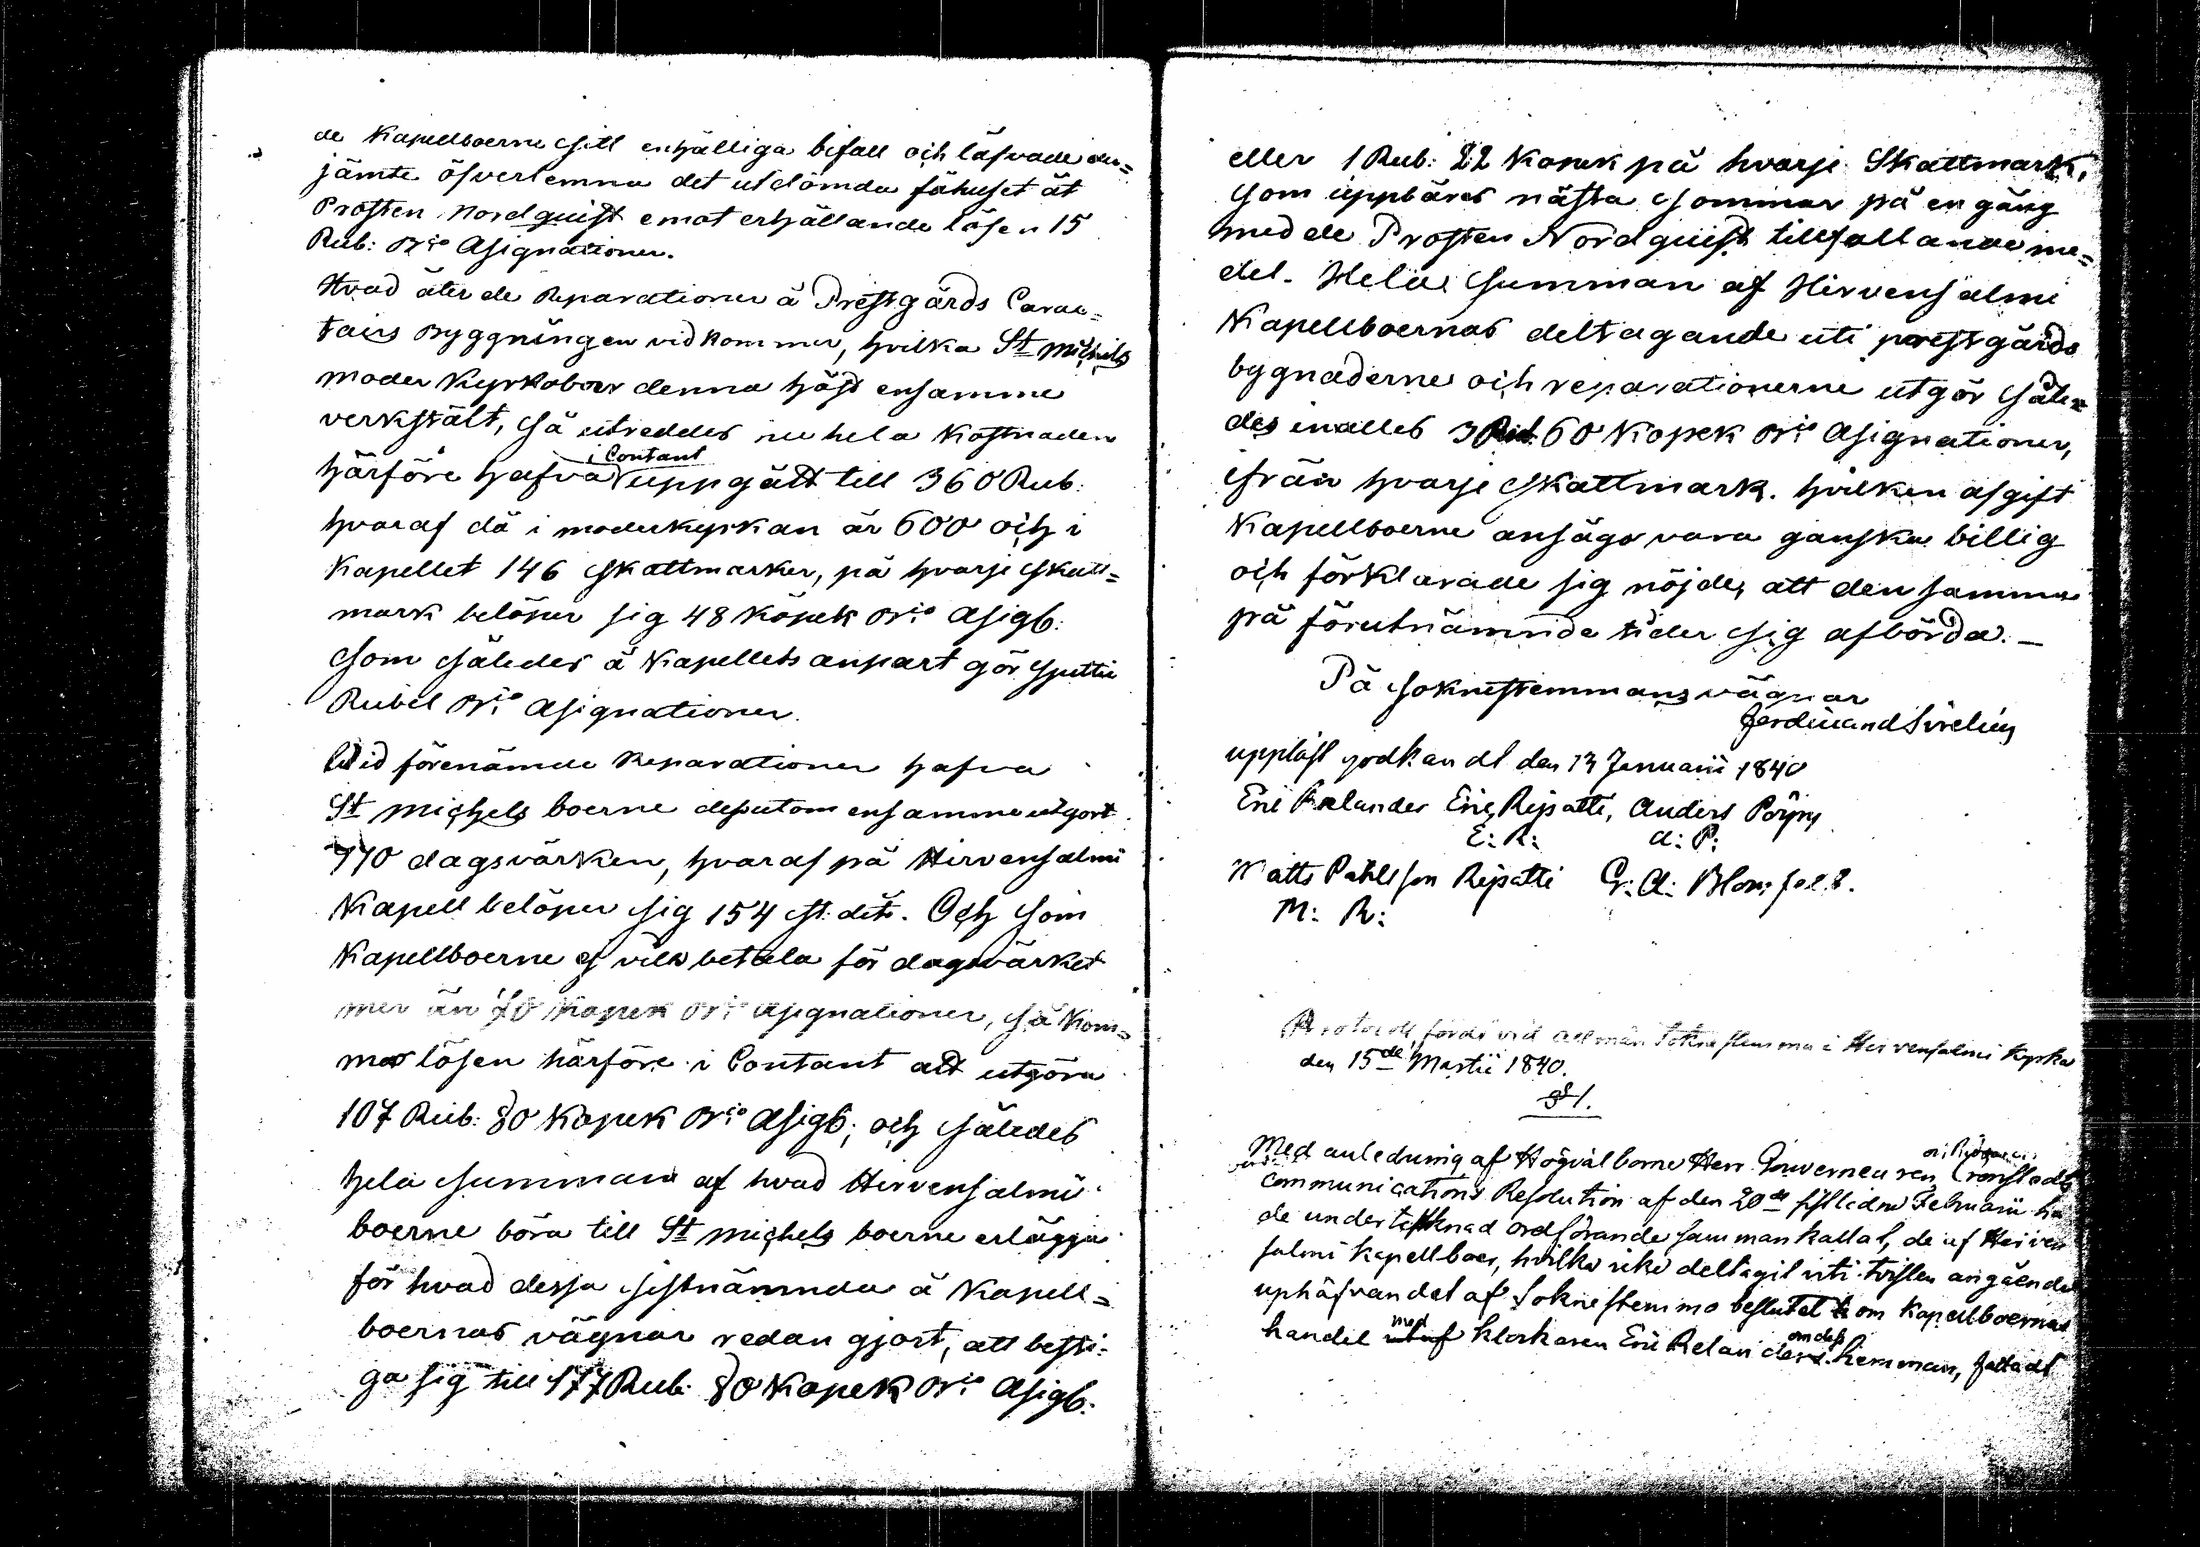 de Kapellboerne sitt enhälliga bifall och låfvade der=
jämte öfverlemna det utdömda fähuset åt
Prosten Nordquist emot erhållande lösen 15
Rub: B:co Assignationer.
Hvad åter de Reparationer å Prestgårds Carac=
tairs Byggningen vidkommer, hvilka St Michels
moder Kyrkoboer denna höst ensamme
verkstält, så utreddes nu hela Kostnaden
härföre hafva i Contant uppgått till 360 Rub:
hvaraf då i moderkyrkan är 600 och i
Kapellet 146 skattmarker, på hvarje skatt=
mark belöper sig 48 Kopek B:co Assigb:
som således å Kapellets anpart gör sjuttio
Rubel B:co Assignationer.
Vid förenämde Reparationer hafva
St Michels boerne dessutom ensamme utgort
770 dagsvärken, hvaraf på Hirvensalmi
Kapell belöper sig 154 st. dito. Och som
Kapellboerne ej vilja betala för dagsvärket
mer än 70 Kopek B:co Assignationer, så kom=
mer lösen härföre i Contant att utgöra
107 Rub: 80 Kopek B:co Assigb; och således
hela summan af hvad Hirvensalmi
boerne böra till St Michels boerne erlägga
för hvad dessa sistnämnda å Kapell=
boernas vägnar redan gjort, att besti=
ga sig till 177 Rub: 80 Kopek B:co Assigb:
eller 1 Rub: 22 Kopek på hvarje Skattmark,
som uppbäres nästa sommar på en gång
med de Prosten Nordquist tillfallande me=
del. Hela summan af Hirvensalmi
Kapellboernas deltagande uti prestgårds
bygnaderne och reparationerne utgör såle=
des inalles 3 Rub. 60 Kopek B:co Assignationer,
ifrån hvarje skattmark. hvilken afgift
Kapellboerne ansågo vara ganska billig
och förklarade sig nöjde, att densamma
på förutnämnde tider sig afbörda. —
På Soknestemmans vägnar
Ferdinand Sirelius
uppläst godkändt den 13 Januarii 1840
Eric Relander Eric Ripatti, Anders Pöyry
E: R: A: P:
Matts Påhlsson Ripatti G: A: Blomfelt.
M: R:
Protocoll, fördt vid allmän Soknestemma i Hirvensalmi Kyrka
den 15de Martii 1840.
§ 1.
Med anledning af Högvälborne Herr Gouverneuren Cronstedts
communications Resolution af den 20de sistlidne Februarii ha
de undertecknad ordförande sammankallat, de af Hirven
salmi kapellboer, hvilka icke deltagit uti tvisten angående
uphäfvandet af Soknestemmo beslutet om Kapellboernas
handel med klockaren Eric Relander om dess hemman, fattadt